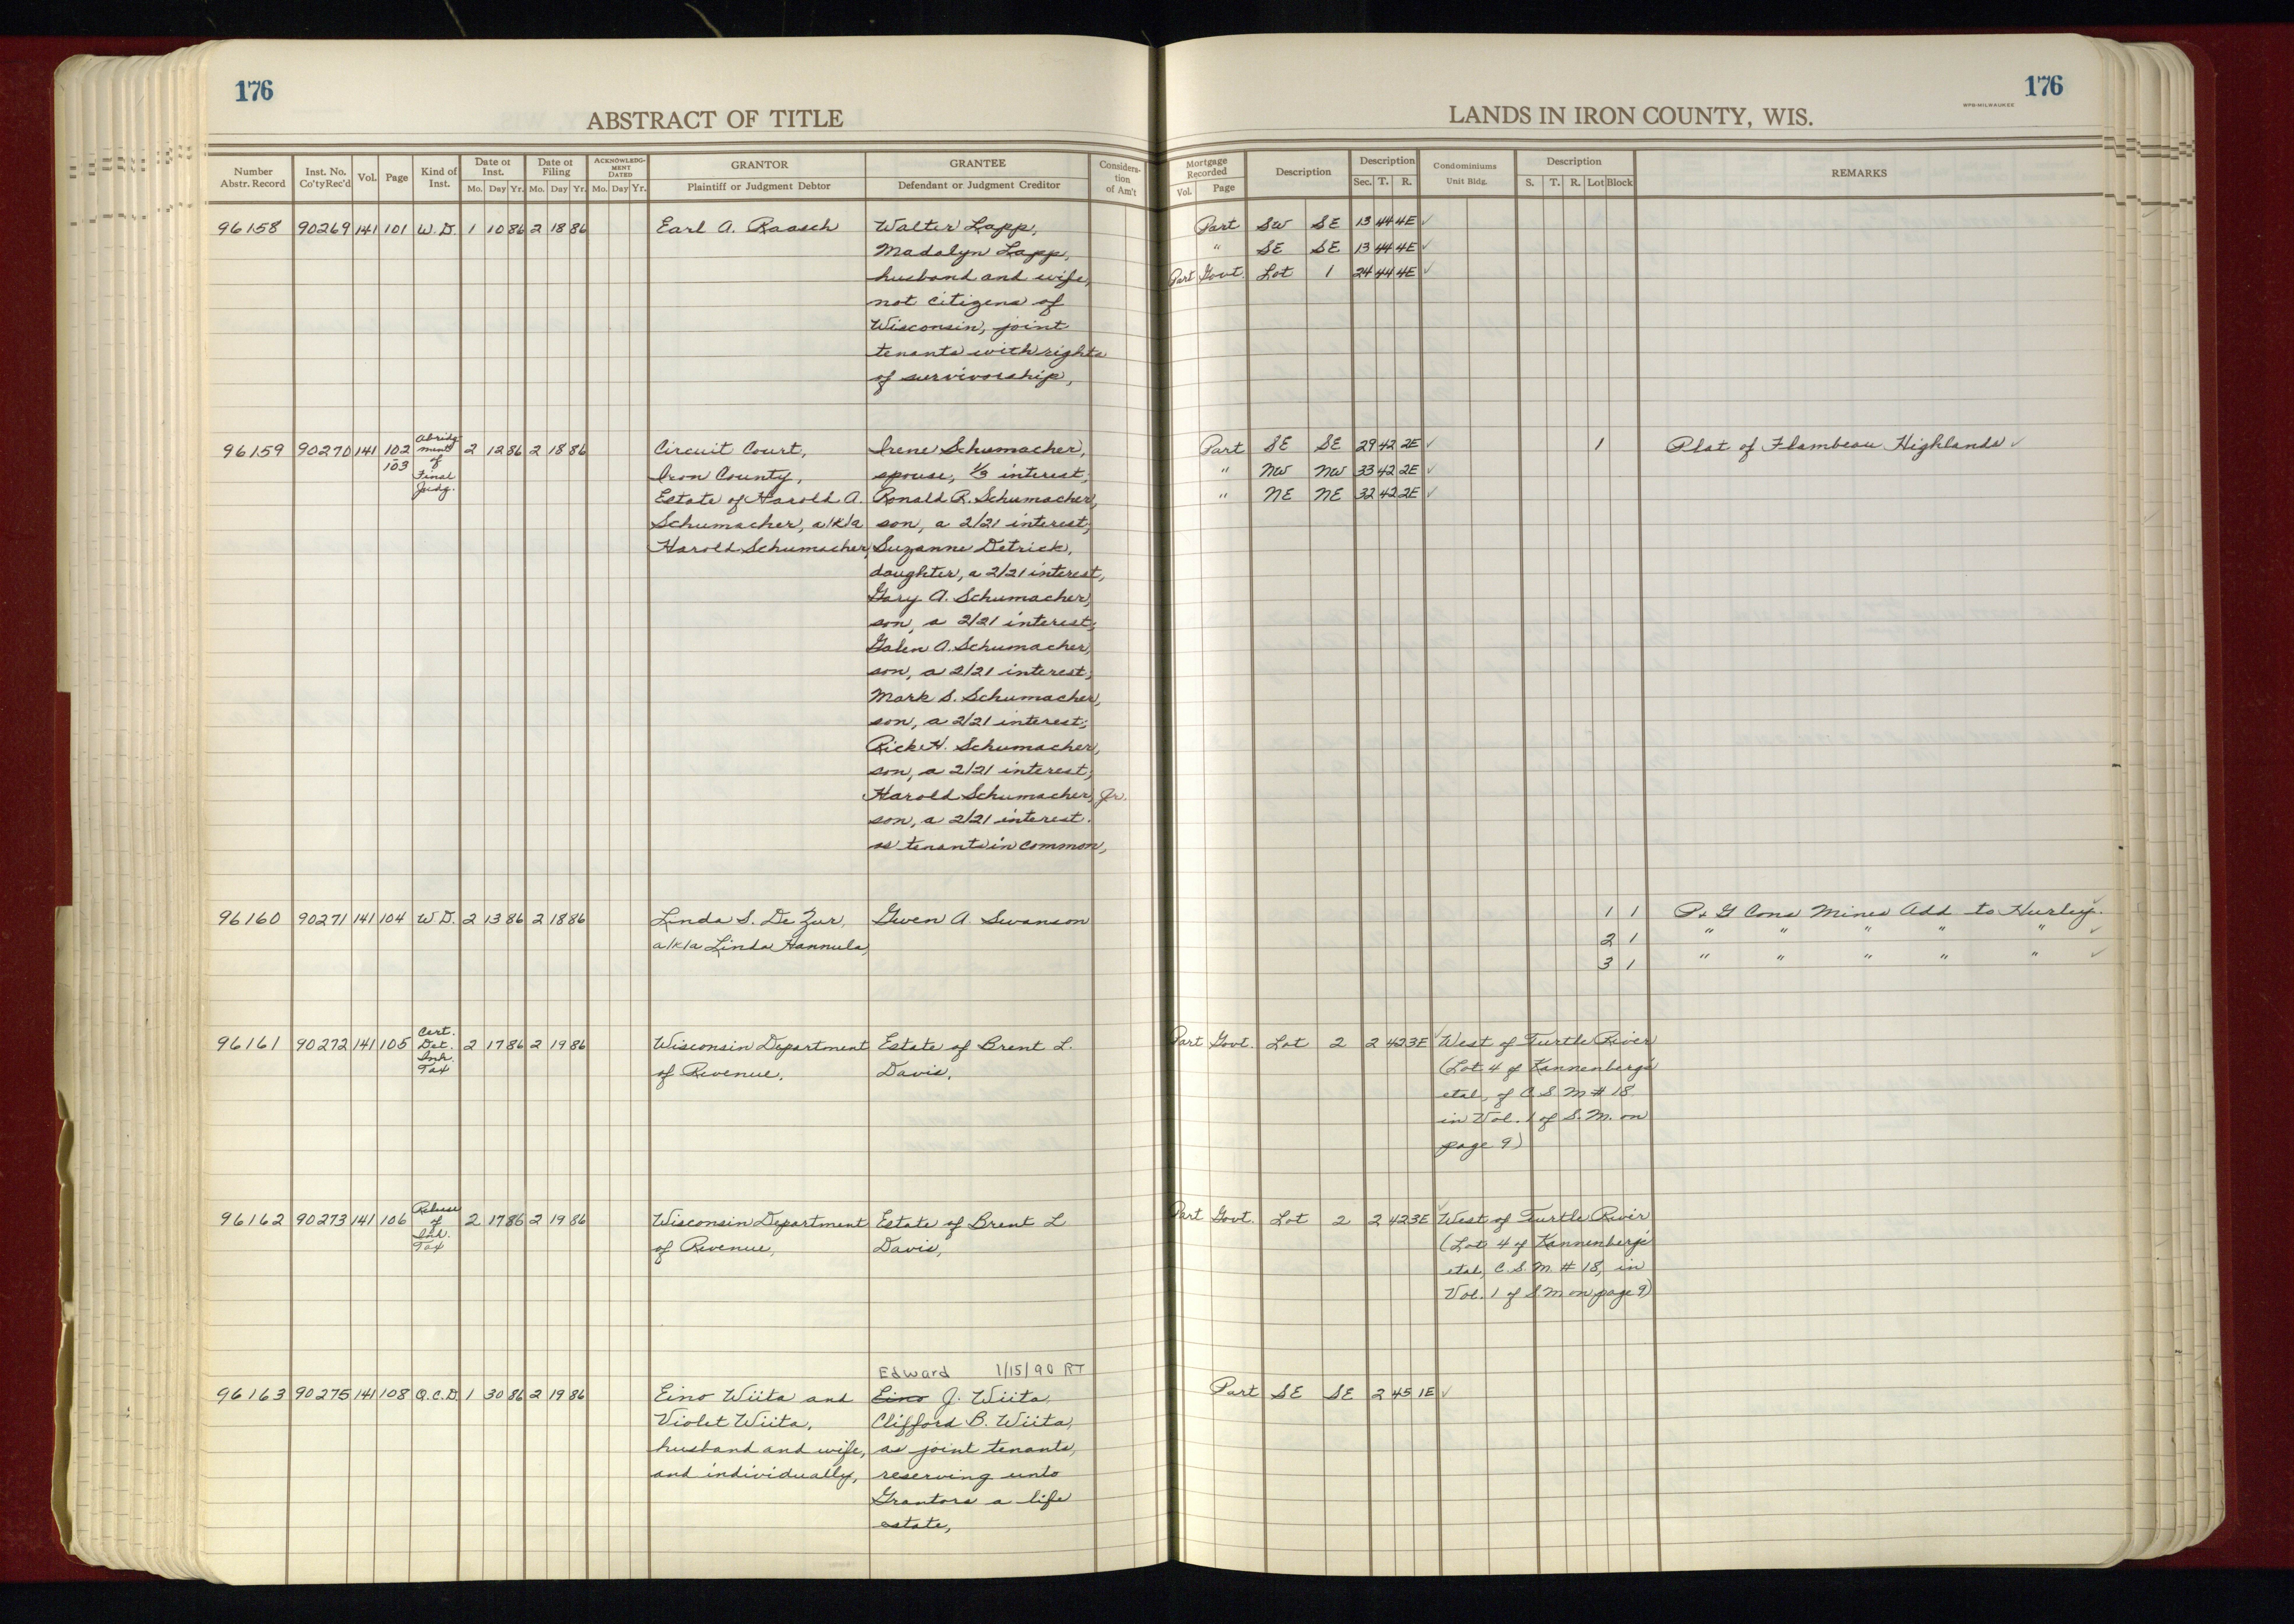 176
176
WPB-MILWAUKEE
ABSTRACT OF TITLE
LANDS IN IRON COUNTY, WIS.
Number Abstr. Record | Inst. No. Co'ty Rec'd | Vol. | Page | Kind of Inst. | Date of Inst. Mo. Day Yr. | Date of Filing Mo. Day Yr. | ACKNOWLEDGMENT DATED Mo. Day Yr. | GRANTOR Plaintiff or Judgment Debtor | GRANTEE Defendant or Judgment Creditor | Consideration of Am't
Mortgage Recorded Vol. Page | Description | Description Sec. T. R. | Condominiums Unit Bldg. | Description S. T. R. Lot Block | REMARKS
96158 90269 141 101 W.D. 1 10 86 2 18 86 Earl A. Raasch Walter Lapp, Part SW SE 13 44 4E ✓
Madalyn Lapp, " SE SE 13 44 4E ✓
husband and wife, Part Govt. Lot 1 24 44 4E ✓
not citizens of
Wisconsin, joint
tenants with rights
of survivorship,
96159 90270 141 102-103 Abridgment of Final Judg. 2 12 86 2 18 86 Circuit Court, Irene Schumacher, Part SE SE 29 42 2E ✓ 1 Plat of Flambeau Highlands ✓
Iron County, spouse, 1/3 interest, " NW NW 33 42 2E ✓
Estate of Harold A. Ronald R. Schumacher, " NE NE 32 42 2E ✓
Schumacher, a/k/a son, a 2/21 interest,
Harold Schumacher, Suzanne Detrick,
daughter, a 2/21 interest,
Gary A. Schumacher,
son, a 2/21 interest,
Galen A. Schumacher,
son, a 2/21 interest,
Mark S. Schumacher,
son, a 2/21 interest;
Rick H. Schumacher,
son, a 2/21 interest,
Harold Schumacher, Jr.
son, a 2/21 interest.
as tenants in common,
96160 90271 141 104 W.D. 2 13 86 2 18 86 Linda S. De Zur, Gwen A. Swanson 1 1 P & G Cons Mines Add to Hurley. ✓
a/k/a Linda Hannula, 2 1 " " " " " ✓
3 1 " " " " " ✓
96161 90272 141 105 Cert. Det. Inh. Tax 2 17 86 2 19 86 Wisconsin Department Estate of Brent L. Part Govt. Lot 2 2 42 3E ✓ West of Turtle River
of Revenue, Davis, (Lot 4 of Kannenberg's
etal, of C.S.M # 18
in Vol. 1 of S.M. on
page 9)
96162 90273 141 106 Release of Inh. Tax 2 17 86 2 19 86 Wisconsin Department Estate of Brent L Part Govt. Lot 2 2 42 3E ✓ West of Turtle River
of Revenue, Davis, (Lot 4 of Kannenberg's
etal, C.S.M. # 18, in
Vol. 1 of S.M on page 9)
Edward 1/15/90 RT
96163 90275 141 108 Q.C.D. 1 30 86 2 19 86 Eino Wiita and Eino J. Wiita, Part SE SE 2 45 1E ✓
Violet Wiita, Clifford B. Wiita,
husband and wife, as joint tenants,
and individually, reserving unto
Grantors a life
estate,